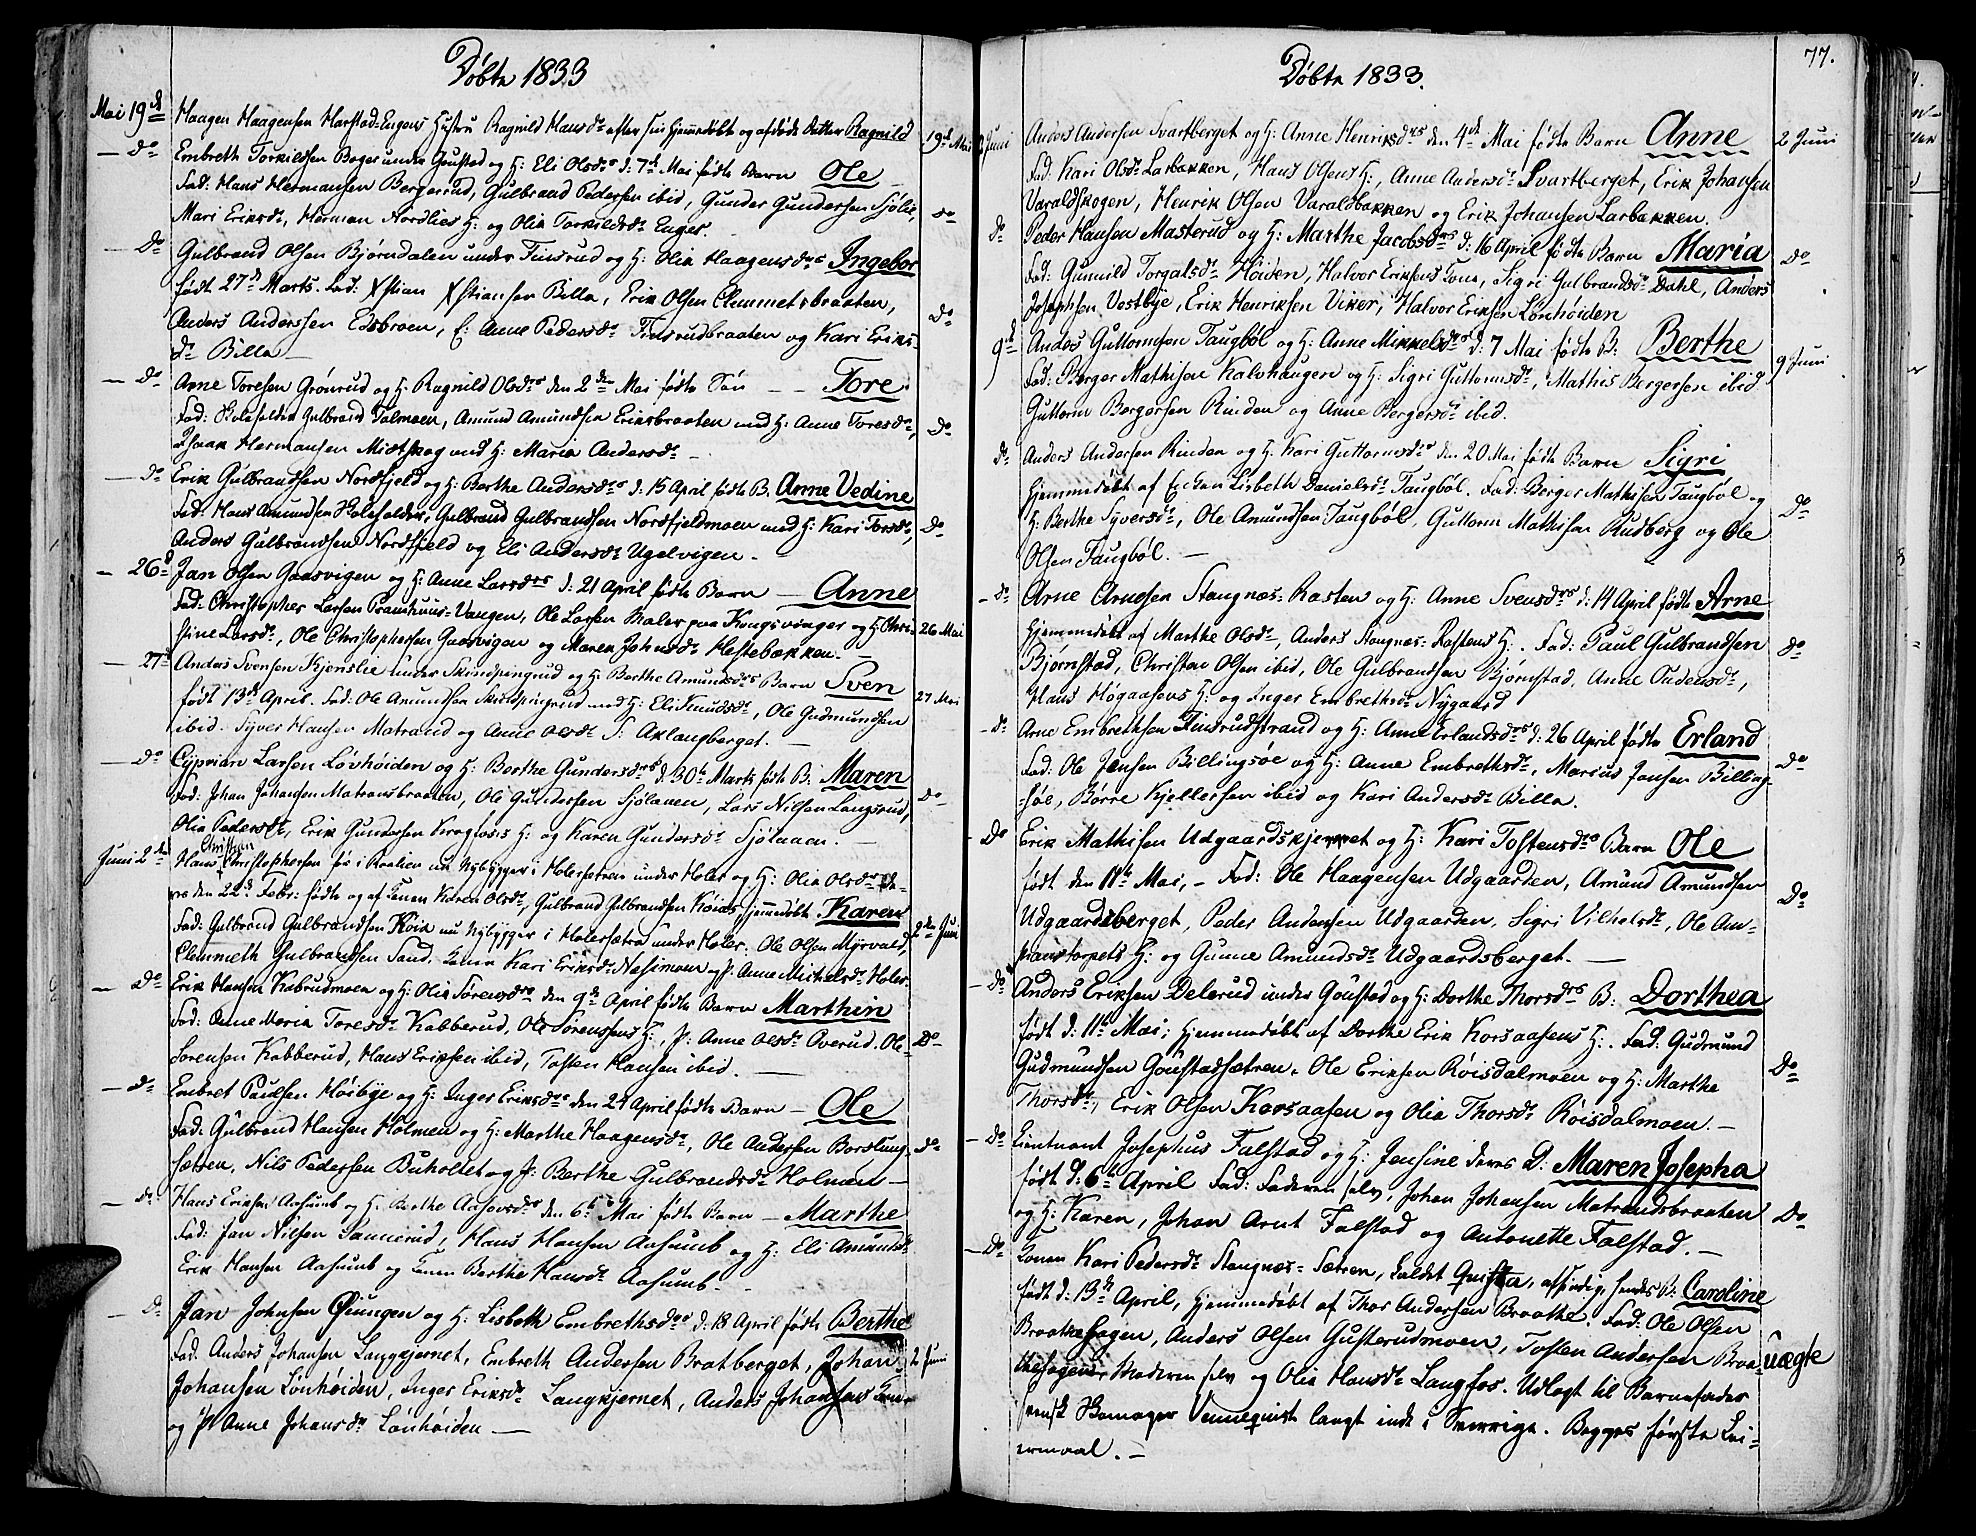 Døbte 1833
Mai 19de Haagen Haagensen Harstad-Engens Hustru Ragnild Hansdr efter sin hjemmedøbt og afdøde Datter Ragnild 19d Mai
— Do Embreth Torkildsen Boger under Goustad og H: Eli Olsdr d: 7de Mai fødte Barn Ole
Fad: Hans Hermansen Bergerud, Gulbrand Pedersen ibid, Gunder Gundersen Sjölie,
Mari Eriksdr, Herman Nordlies H: og Olia Torkildsdr Enger. do
— Do Gulbrand Olsen Bjørndalen under Finsrud og H: Olia Haagensdrs Ingebor
født 27de Marts. Fad: Xstian Xstiansen Billa, Erik Olsen Clemmetsbraaten,
Anders Anderssen Edsbroen, E: Anne Pedersdr Finsrudbraaten og Kari Eriks- Do
dr Billa —
— Do Arne Toresen Grönrud og H: Ragnild Olsdrs den 2den Mai fødte Sön — Tore
Fad: Gulbrand Talmoen, Amund Amundsen Eriksbraaten med H: Anne Toresdr, Do
Isaak Hermansen Mietskog med H: Maria Andersdr —
— Do Erik Gulbrandsen Nordfjeld og H: Berthe Andersdrs d: 15 April fødte B. Anne Vedine
Fad: Hans Amundsen Holeholder, Gulbrand Gulbrandsen Nordfjeldmoen med H: Kari Torsdr, Do
Anders Gulbrandsen Nordfjeld og Eli Andersdr Ugelvigen —
— 26d Jan Olsen Gaasvigen og H: Anne Larsdrs d: 21 April fødte Barn — Anne
Fad: Christopher Larsen Pramhuus-Vangen, Ole Larsen Maler paa Kongsvinger og H: Chri- 26 Mai
stine Larsdr, Ole Christophersen Gaasvigen og Maren Johnsdr Hestebækken. —
— 27d Anders Svensen Kjenslie under Skindpungrud og H: Berthe Amundsdrs Barn Sven
født 13de April. Fad: Ole Amundsen Skindpungrud med H: Eli Knudsdr, Ole Gudmundsen 27 Mai
ibid. Syver Hansen Matrand og Anne Olsdr S: Aklangberget. —
— Do Cyprian Larsen Løvhøiden og H: Berthe Gundersdrs d: 30te Marts fødte B: Maren
Fad: Johan Johansen Matransbraaten, Ole Gundersen Sjölanen, Lars Nilsen Langsrud, Do
Olia Pedersdr, Erik Gundersen Krogfosis H: og Karen Gundersdr Sjölanen. —
Juni 2den Hans Christian Christophersen fö i Raalien nu Nybygger i Holersætren under Holer og H: Olia Olsdrs De-
res den 22d Febr: fødte og af Konen Karen Olsdr, Gulbrand Gulbrandsen Köias hjemmedøbte Karen
Fad: Gulbrand Gulbrandsen Köia nu Nybygger i Holersætra under Holer. Ole Olsen Myrvald, 2den Juni
Clemmeth Gulbrandsen Sand. Konen Kari Eriksdr Næsimoen og P. Anne Michelsdr Holer
— Do Erik Hansen Kabrudmoen og H: Olia Sörensdrs den 9de April fødte Barn Marthin
Fad: Anne Maria Toresdr Kabberud, Ole Sörensens H:, P: Anne Olsdr Overud. Ole Do
Sörensen Kabberud, Hans Eriksen ibid, Tosten Hansen ibid. —
— Do Embret Paulsen Høibye og H: Inger Eriksdrs den 21 April fødte Barn — Ole
Fad: Gulbrand Hansen Holmen og H: Marthe Haagensdr, Ole Andersen Borslung- Do
sætren, Nils Pedersen Buholtet og P: Berthe Gulbrandsdr Holmen —
— Do Hans Eriksen Aasumb og H: Berthe Aschousdrs den 6te Mai fødte Barn — Marthe
Fad: Jan Nilsen Sannerud, Hans Hansen Aasumb og H: Eli Amundsdr
Erik Hansen Aasumb og Konen Berthe Hansdr Aasumb. —
— Do Jan Johnsen Öiungen og H: Lisbeth Embrethsdrs d: 18 April fødte Berthe
Fad: Anders Johansen Langkjernet, Embreth Andersen Bratberget, Johan 2 Juni
Johansen Lönhöiden, Inger Eriksdr Langkjernet, Anders Johansens Kone
og P: Anne Johansdr Lönhöiden —
Døbte 1833. 77.
2 Juni Anders Andersen Svartberget og H: Anne Henriksdrs den 4de Mai fødte Barn Anne 2 Juni
Fad: Kari Olsdr Larbakken, Hans Olsens H:, Anne Andersdr Svartberget, Erik Johansen
Varaldskogen, Henrik Olsen Varaldbakken og Erik Johansen Larbakken.
do Peder Hansen Masterud og H: Marthe Jacobsdrs d: 16 April fødte Barn Maria Do
Fad: Gunnild Torgalsdr Höiden, Halvor Eriksens Kone, Sigri Gulbrandsdr Dahl, Anders
Josephsen Vestbye, Erik Henriksen Viker, Halvor Eriksen Lönhöiden
9de Anders Guttormsen Taugböl og H: Anne Mikkelsdrs d: 7 Mai fødte B: Berthe 9 Juni
Fad: Berger Mathisen Kalvhaugen og H: Sigri Guttormsdr, Mathis Bergersen ibid
Guttorm Bergersen Rinden og Anne Bergersdr ibid.
do Anders Andersen Rinden og H: Kari Guttormsdrs den 20 Mai fødte Barn Sigri
Hjemmedöbt af Enken Lisbeth Danielsdr Taugböl. Fad: Berger Mathisen Taugböl og Do
H: Berthe Syversdr, Ole Amundsen Taugböl, Guttorm Mathisen Rudberg og Ole
Olsen Taugböl. —
— do Arne Arnesen Stangnæs-Rasten og H: Anne Svensdrs d: 14 April fødte Arne
Hjemmedöbt af Marthe Olsdr, Anders Stangnæs-Rastens H:. Fad: Paul Gulbrandsen Do
Björnstad, Christen Olsen ibid, Ole Gulbrandsen Björnstad, Anne Pedersdr,
Hans Högaasens H: og Inger Embrethsdr Nygaard
— do Arne Embrethsen Finsrudstrand og H: Anne Erlandsdrs d: 26 April fødte Erland
Fad: Ole Jensen Billingsöe og H: Anne Embrethsdr, Marius Jensen Billing- Do
-söe, Börre Kjellersen ibid og Kari Andersdr Billa.
— Do Erik Mathisen Udgaardskjernet og H: Kari Tostensdrs Barn Ole
født den 11te Mai, — Fad: Ole Haagensen Udgaarden, Amund Amundsen Do
Udgaardsberget, Peder Andersen Udgaarden, Sigri Vilhelsdr, Ole Am-
pianstorpets H: og Gunne Amundsdr Udgaardsberget. —
— Do Anders Eriksen Delerud under Goustad og H: Dorthe Thorsdrs B: Dorthea
født d: 11te Mai; Hjemmedöbt af Dorthe Erik Korsaasens H:. Fad: Gudmund
Gudmundsen Goustadsætren, Ole Eriksen Röisdalmoen og H: Marthe Do
Thorsdr, Erik Olsen Korsaasen og Olia Thorsdr Röisdalmoen. —
— Do Lieutnant Josephus Falstad og H: Jensine deres D: Maren Josepha
født d: 6te April Fad: Faderen selv, Johan Johansen Matrandsbraaten
og H: Karen, Johan Arnt Falstad og Antonette Falstad. — Do
— Do Konen Kari Pedersdr Stangnæs-Sætren, kaldet Quista, afsindig, hendes B: Caroline
født d: 13de April, hjemmedöbt af Thor Andersen Braathe. Fad: Ole Olsen
Braathehagen, Anders Olsen Gusterudmoen, Tosten Andersen Braa- uægte
thehagen, Moderen selv og Olia Hansdr Langfos. Udlagt til Barnefader
svensk Vennequist langt inde i Sverrige. Begges første Lei-
ermaal. —